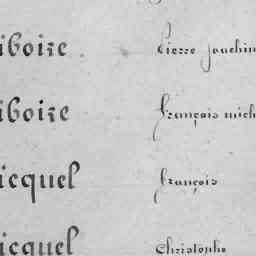 iboire Pierre Joachim
iboire François mich
icquel François
icquel Christophe